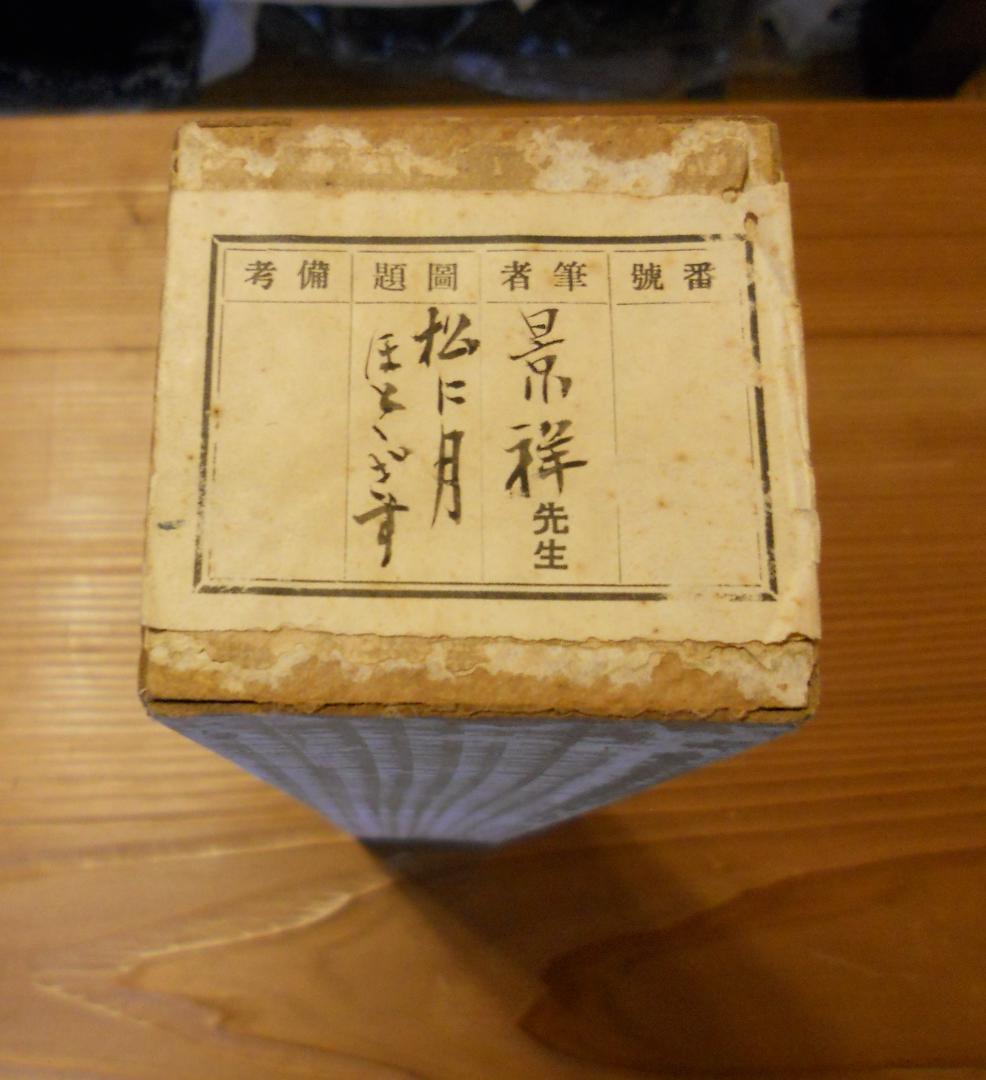 番號
筆者
景祥先生
圖題
松に月
ほとゝぎす
備考